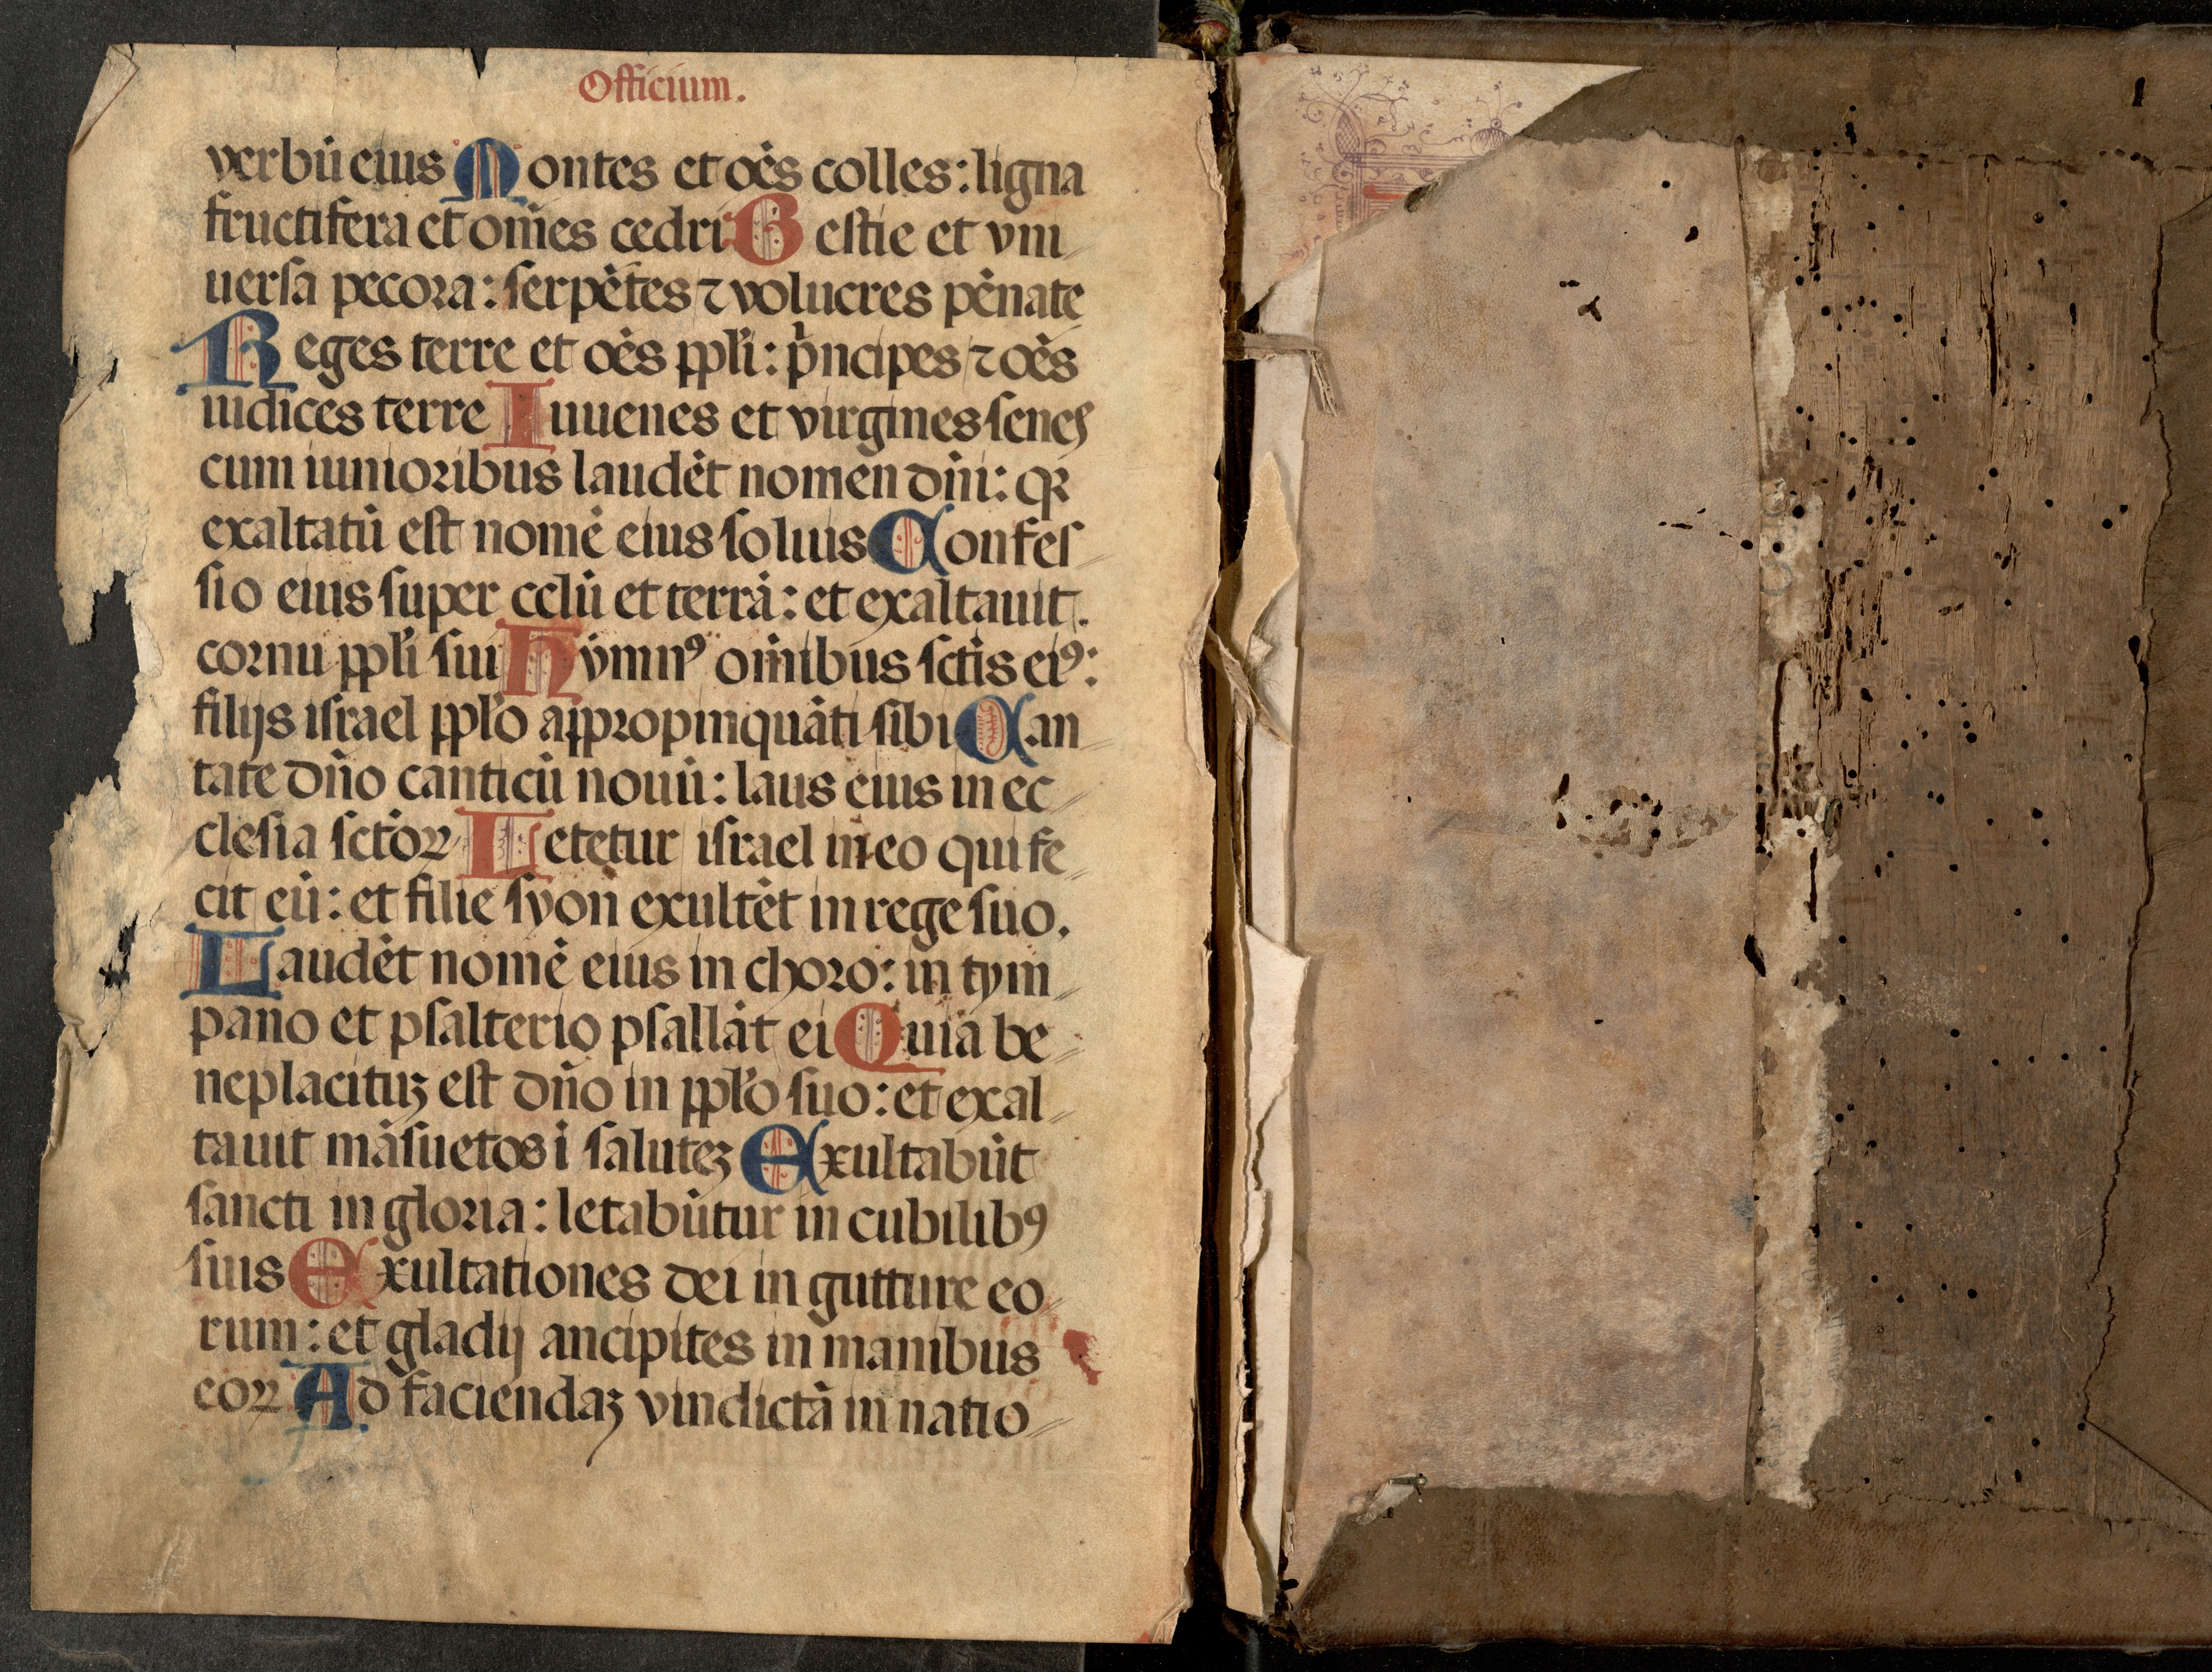 Officium.
verbū eius Montes et oēs colles: ligna
fructifera et om̄es cedri Bestie et vni
uersa pecora: serpētes ⁊ volucres pēnate
Reges terre et oēs ppl̄i: pͥncipes ⁊ oēs
iudices terre Iuuenes et virgines senes
cum iunioribus laudēt nomen dn̄i: qꝛ
exaltatū est nomē eius solius Confes
sio eius super celū et terrā: et exaltauit.
cornu ppl̄i sui Hymnꝰ om̄ibus sctīs eiꝰ:
filijs israel ppl̄o appropinquāti sibi Can
tate dn̄o canticū nouū: laus eius in ec
clesia sctōꝝ Letetur israel in eo qui fe
cit eū: et filie syon exultēt in rege suo.
Laudēt nomē eius in choro: in tym
pano et psalterio psallāt ei Quia be
neplacituꝫ est dn̄o in ppl̄o suo: et exal
tauit māsuetos ī saluteꝫ Exultabūt
sancti in gloria: letabūtur in cubilibꝰ
suis Exultationes dei in gutture eo
rum: et gladij ancipites in manibus
eoꝝ Ad faciendaꝫ vindictā in natio